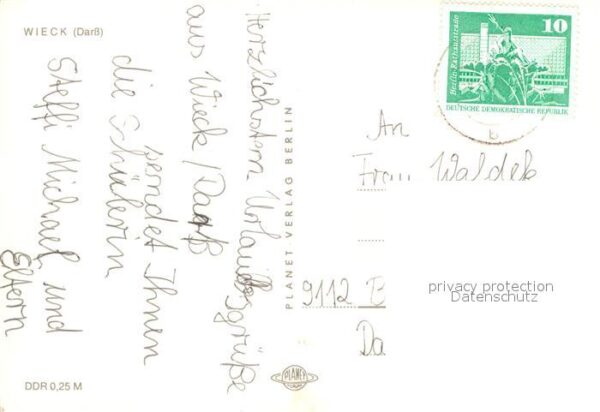 WIECK (Darß)
Herzlichstem Urlaubsgrüße
aus Wieck/Darß
sendet Ihnen
die Schülerin
Steffi Michael und
Eltern
DDR 0,25 M
PLANET-VERLAG BERLIN
PLANET
10
Berlin-Rathausstraße
DEUTSCHE DEMOKRATISCHE REPUBLIK
b
An
Frau Waldek
9112 B
Da
privacy protection
Datenschutz